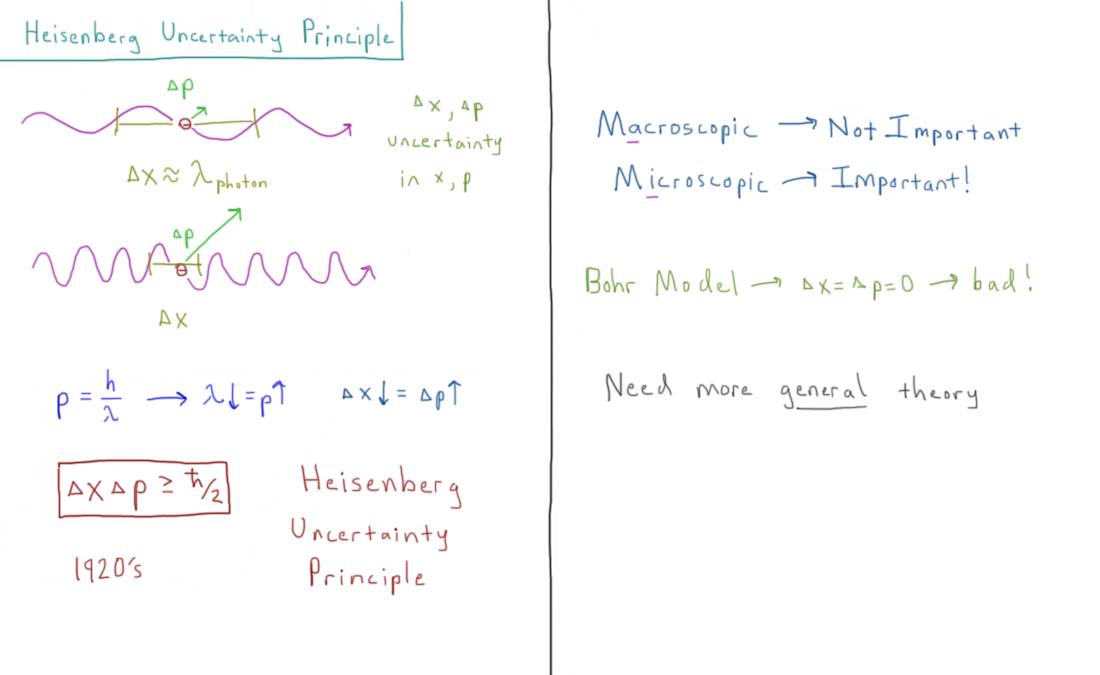 Heisenberg Uncertainty Principle
Δp
Δx, Δp
uncertainty
in x, p
Δx ≈ λphoton
Δp
Δx
p = h/λ → λ↓ = p↑
Δx↓ = Δp↑
ΔxΔp ≥ ħ/2
1920's
Heisenberg
Uncertainty
Principle
Macroscopic → Not Important
Microscopic → Important!
Bohr Model → Δx = Δp = 0 → bad!
Need more general theory